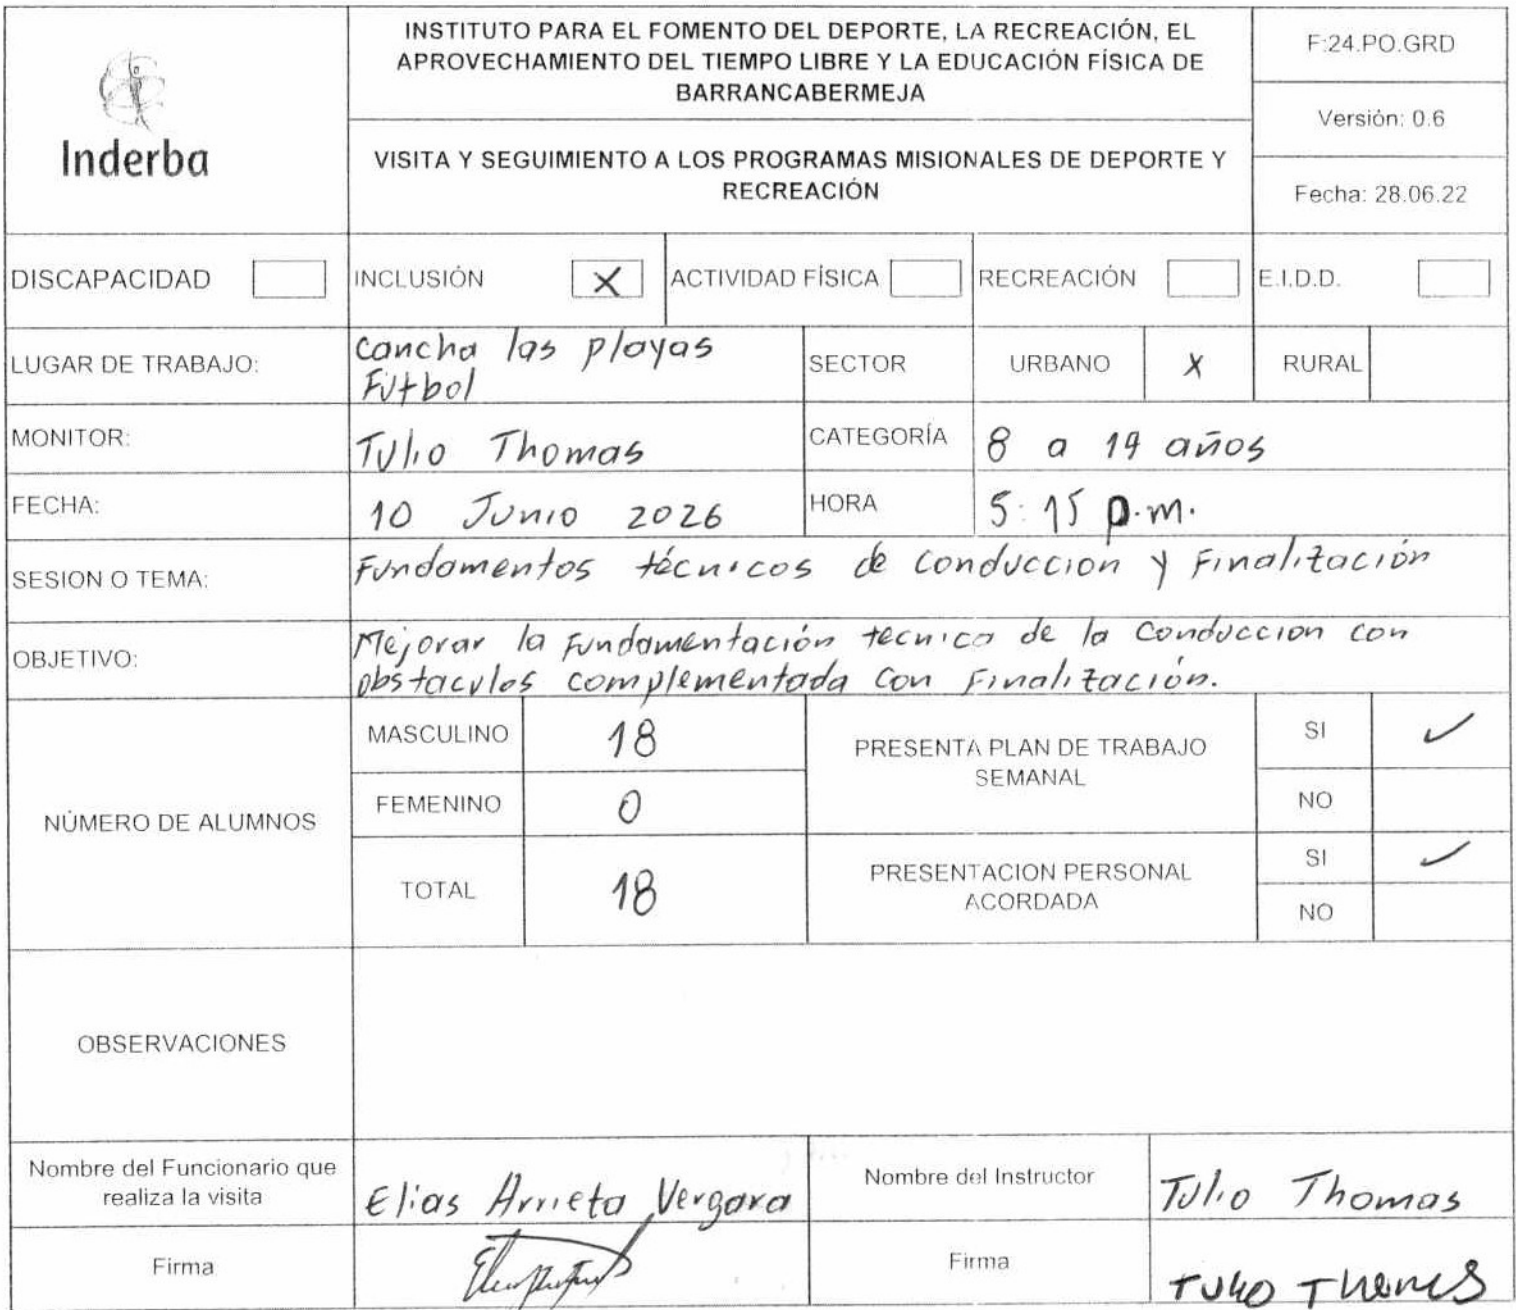 Inderba
INSTITUTO PARA EL FOMENTO DEL DEPORTE, LA RECREACIÓN, EL
APROVECHAMIENTO DEL TIEMPO LIBRE Y LA EDUCACIÓN FÍSICA DE
BARRANCABERMEJA
VISITA Y SEGUIMIENTO A LOS PROGRAMAS MISIONALES DE DEPORTE Y
RECREACIÓN
F:24.PO.GRD
Versión: 0.6
Fecha: 28.06.22
DISCAPACIDAD INCLUSIÓN X ACTIVIDAD FÍSICA RECREACIÓN E.I.D.D.
LUGAR DE TRABAJO: Cancha las playas
Fútbol
SECTOR URBANO X RURAL
MONITOR: Tulio Thomas CATEGORÍA 8 a 19 años
FECHA: 10 Junio 2026 HORA 5:15 p.m.
SESION O TEMA: Fundamentos técnicos de conduccion y Finalización
OBJETIVO: Mejorar la Fundamentación tecnica de la Conduccion con
obstaculos complementada con Finalización.
NÚMERO DE ALUMNOS
MASCULINO 18
FEMENINO 0
TOTAL 18
PRESENTA PLAN DE TRABAJO
SEMANAL
SI ✓
NO
PRESENTACION PERSONAL
ACORDADA
SI ✓
NO
OBSERVACIONES
Nombre del Funcionario que
realiza la visita
Elias Arrieta Vergara
Nombre del Instructor
Tulio Thomas
Firma
Firma
Tulio Thomas